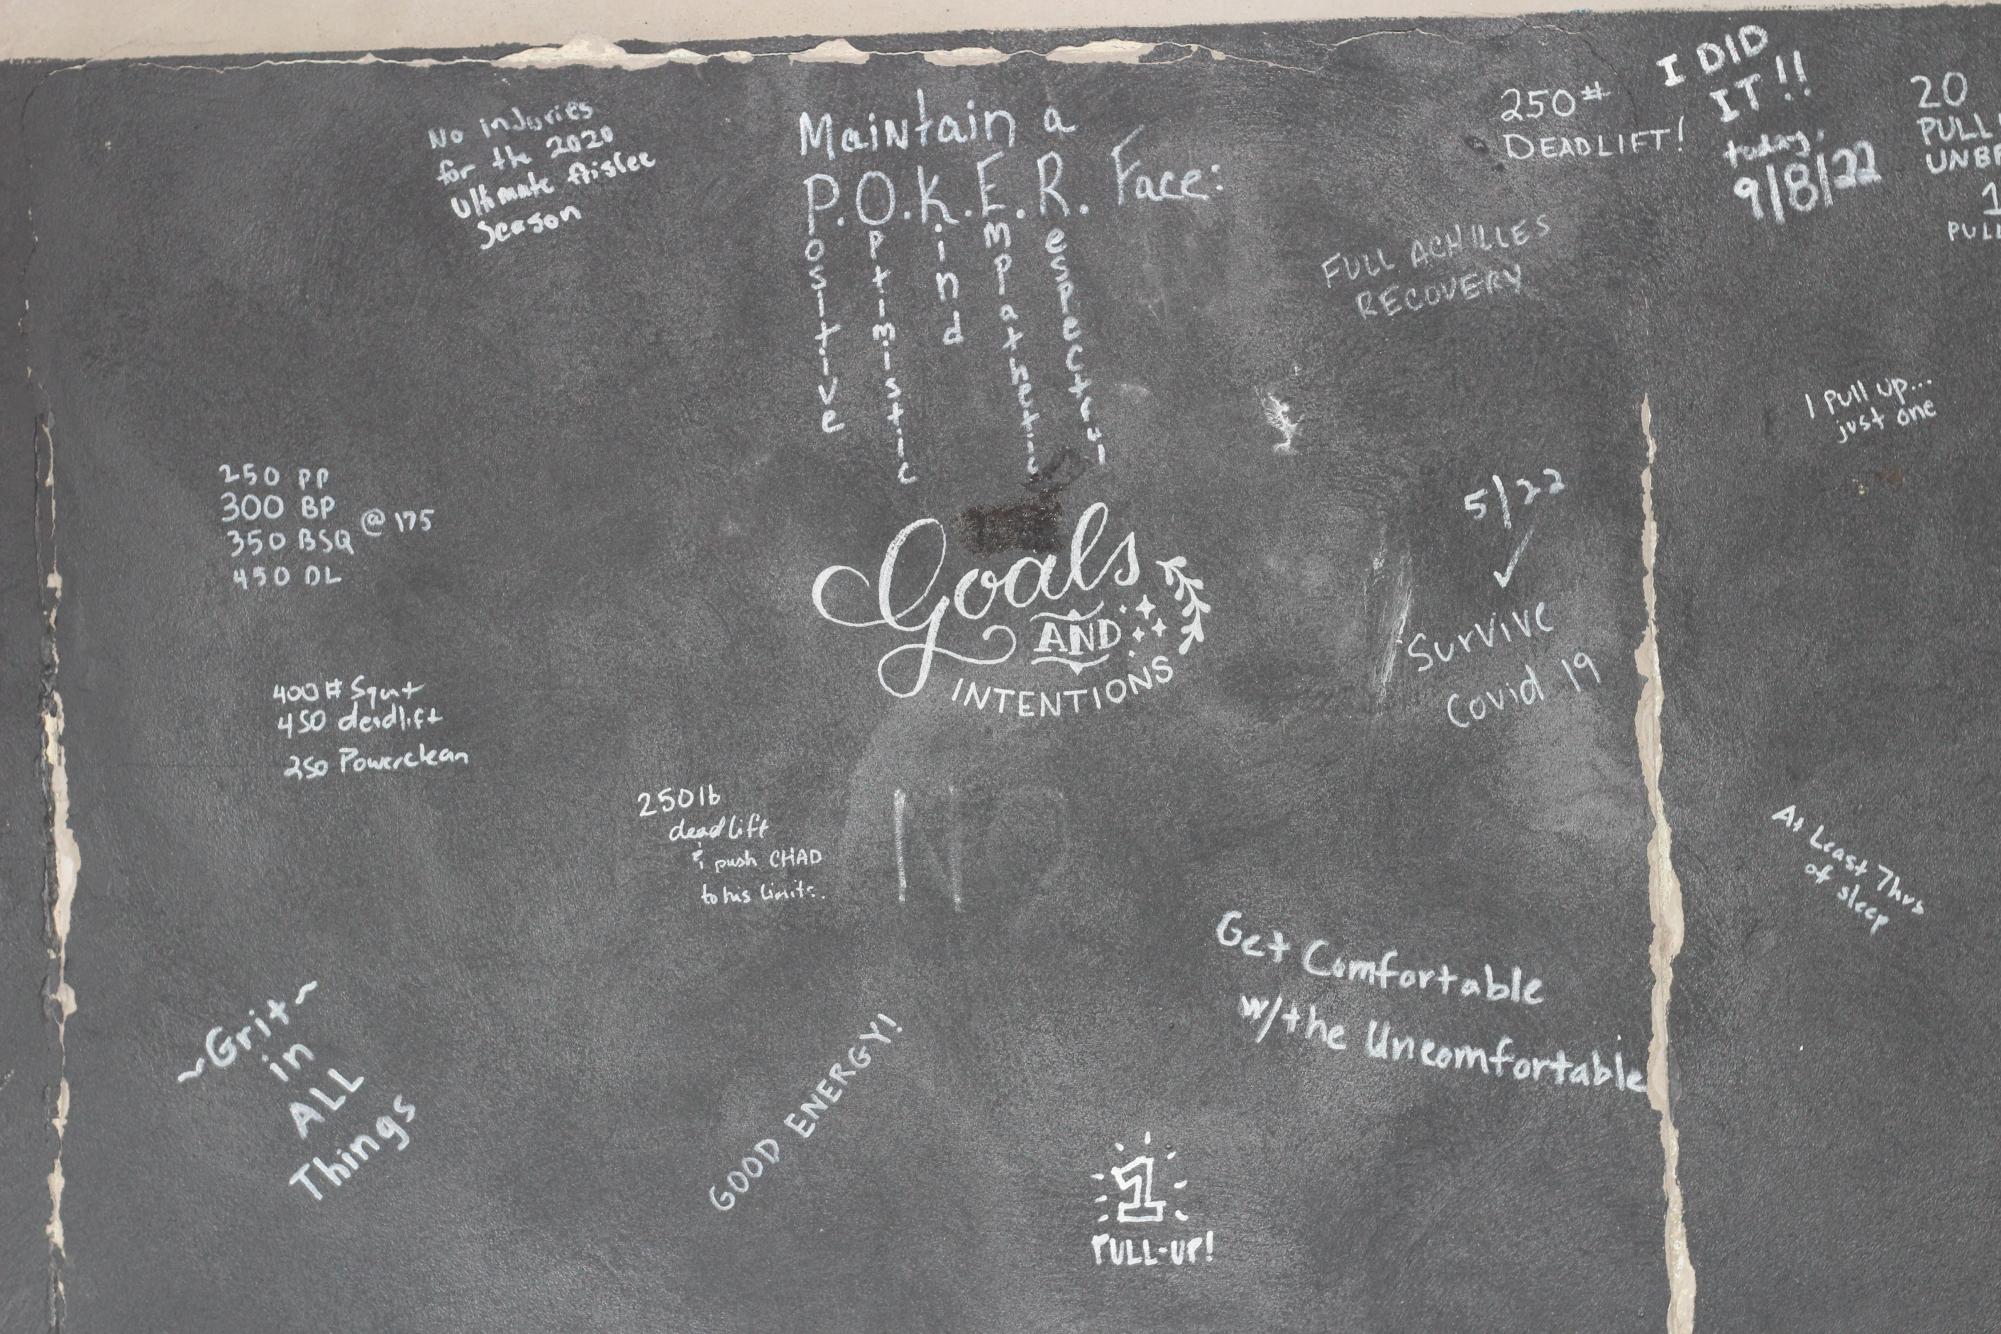 No injuries
for the 2020
Ultimate frisbee
Season
Maintain a
P.O.K.E.R. Face:
Positive
Optimistic
Kind
Empathetic
Respectful
250#
DEADLIFT!
I DID
IT!!
today,
9/8/22
20
PULL
1
PULL
FULL ACHILLES
RECOVERY
1 Pull up...
just one
250 PP
300 BP
350 BSQ @ 175
450 DL
5/22
Survive
Covid 19
Goals
AND
INTENTIONS
400# Squat
450 deadlift
250 Powerclean
250lb
deadlift
& push CHAD
to his limits.
At Least 7hrs
of sleep
Get Comfortable
w/the Uncomfortable
~Grit~
in
ALL
Things
GOOD ENERGY!
1
PULL-UP!